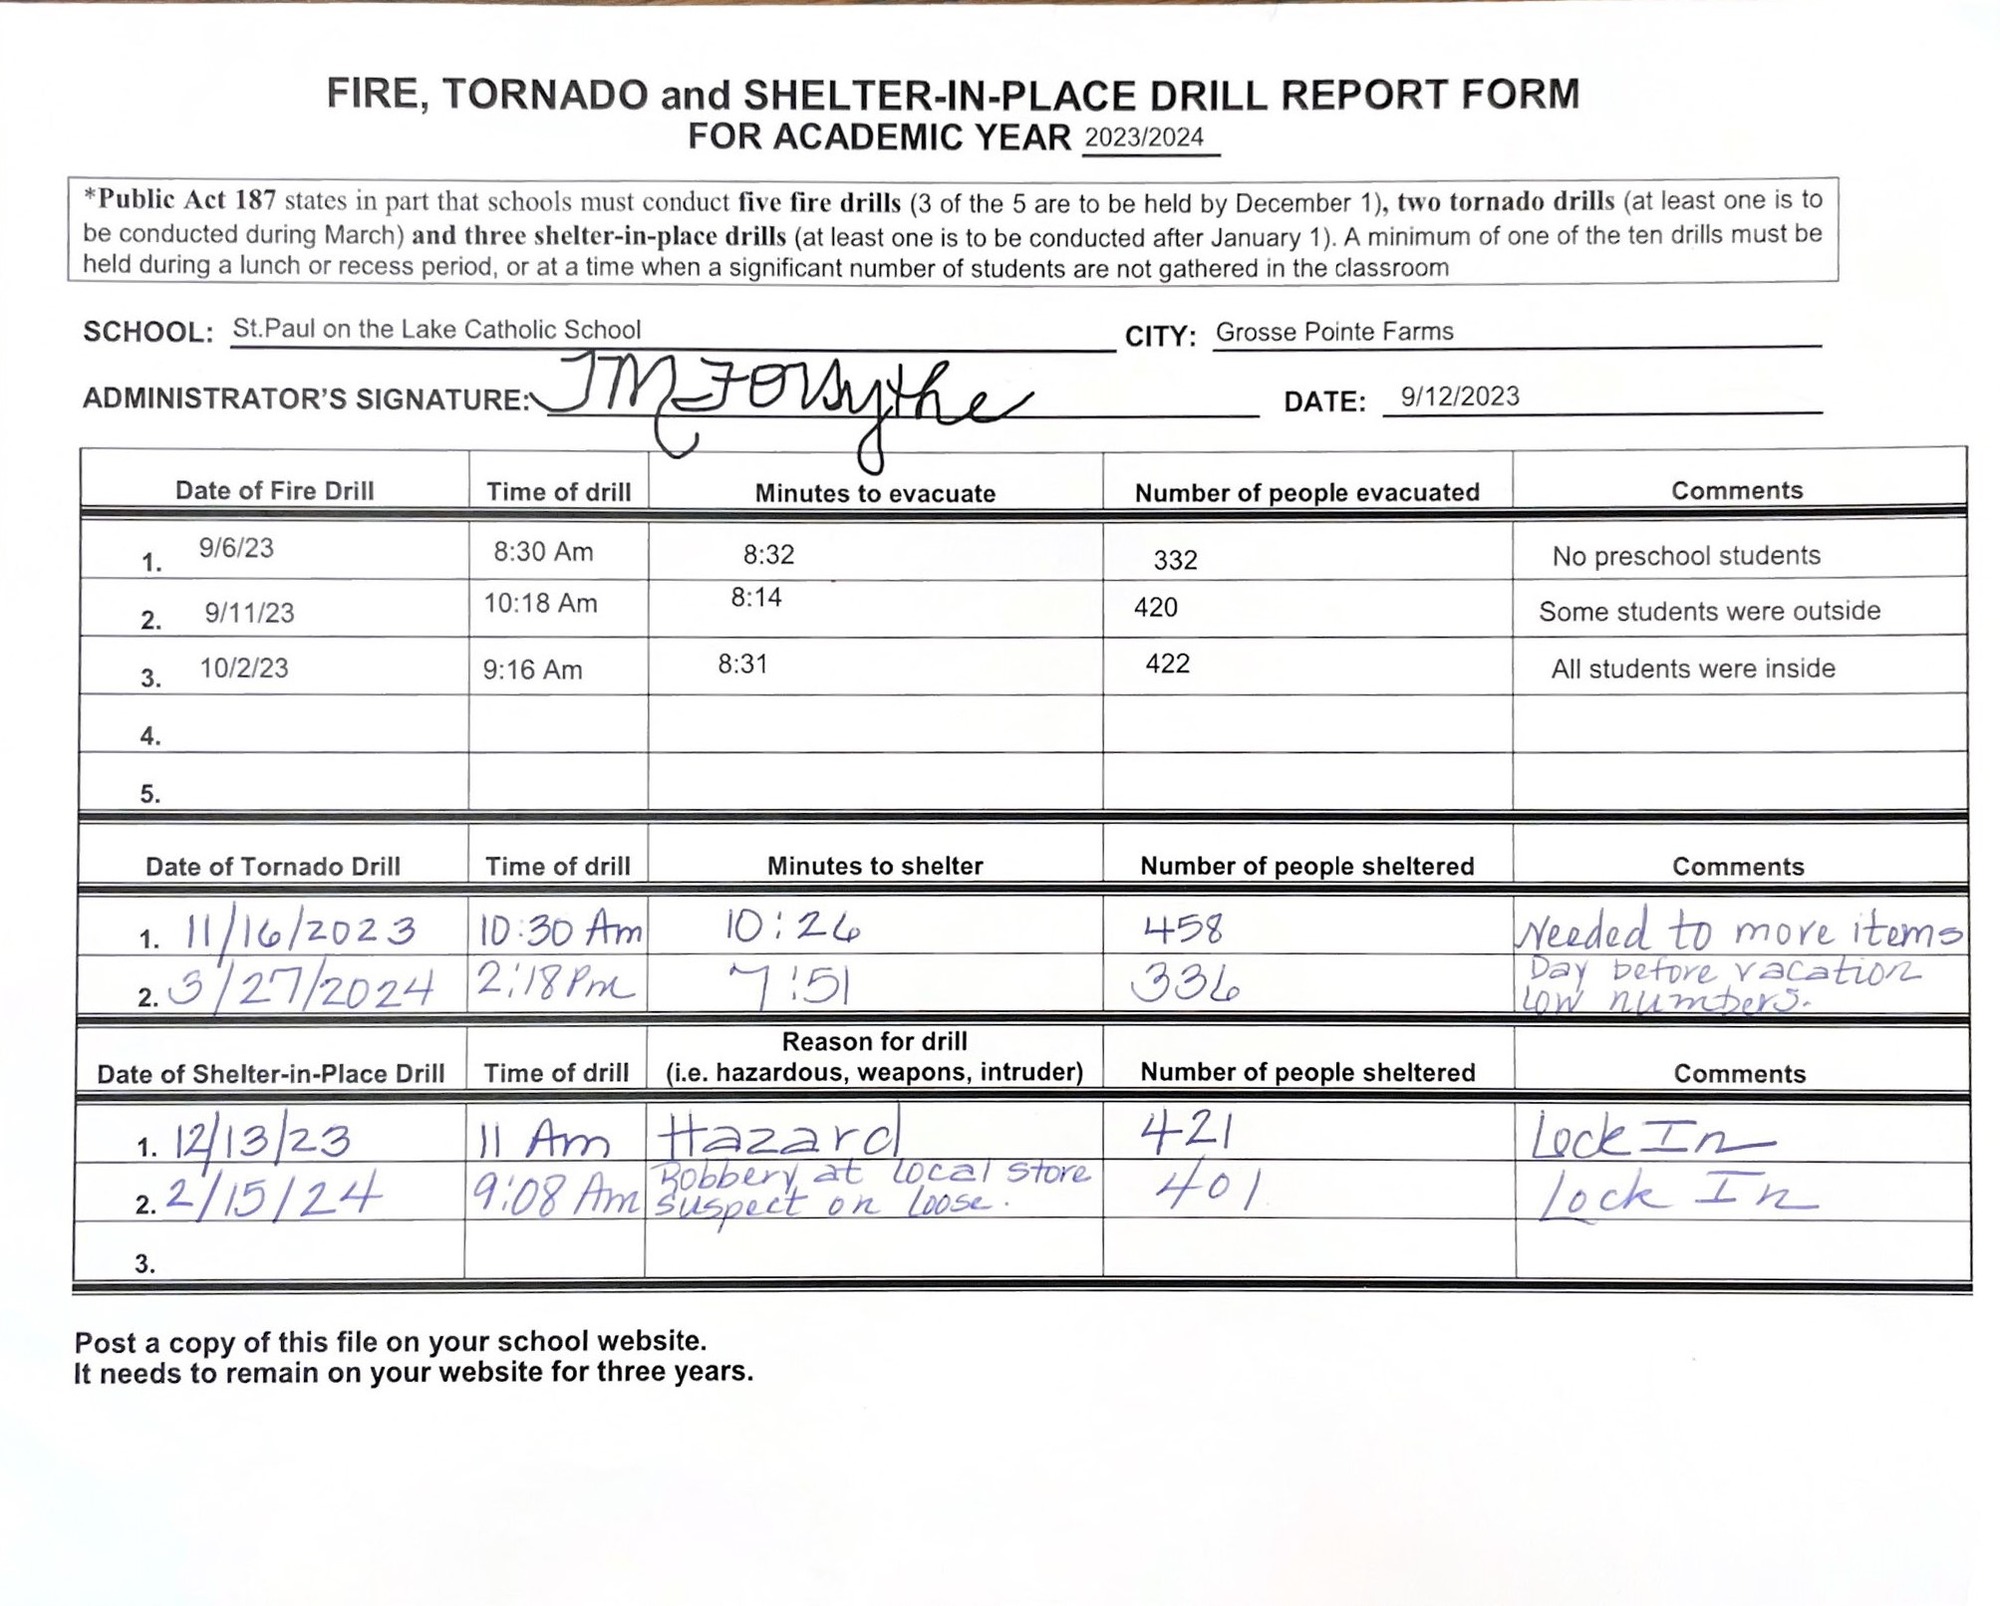 FIRE, TORNADO and SHELTER-IN-PLACE DRILL REPORT FORM
FOR ACADEMIC YEAR 2023/2024
*Public Act 187 states in part that schools must conduct five fire drills (3 of the 5 are to be held by December 1), two tornado drills (at least one is to
be conducted during March) and three shelter-in-place drills (at least one is to be conducted after January 1). A minimum of one of the ten drills must be
held during a lunch or recess period, or at a time when a significant number of students are not gathered in the classroom
SCHOOL: St.Paul on the Lake Catholic School CITY: Grosse Pointe Farms
ADMINISTRATOR'S SIGNATURE: JM Forsythe DATE: 9/12/2023
Date of Fire Drill Time of drill Minutes to evacuate Number of people evacuated Comments
1. 9/6/23 8:30 Am 8:32 332 No preschool students
2. 9/11/23 10:18 Am 8:14 420 Some students were outside
3. 10/2/23 9:16 Am 8:31 422 All students were inside
4.
5.
Date of Tornado Drill Time of drill Minutes to shelter Number of people sheltered Comments
1. 11/16/2023 10:30 Am 10:26 458 Needed to more items
2. 3/27/2024 2:18 Pm 7:51 336 Day before vacation
low numbers.
Reason for drill
Date of Shelter-in-Place Drill Time of drill (i.e. hazardous, weapons, intruder) Number of people sheltered Comments
1. 12/13/23 11 Am Hazard 421 Lock In
2. 2/15/24 9:08 Am Robbery at local store 401 Lock In
suspect on loose.
3.
Post a copy of this file on your school website.
It needs to remain on your website for three years.